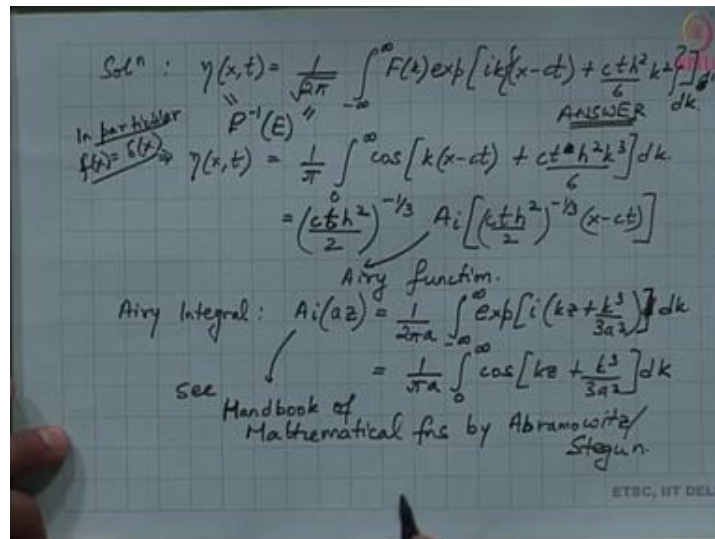 Solⁿ : η(x,t) = 1/√2π ∫_{-∞}^{∞} F(k) exp[ik{(x-ct) + cth²/6 k²}] dk.
" F⁻¹(E) " ANSWER
In particular f(x) = δ(x) ⇒ η(x,t) = 1/π ∫_0^∞ cos[k(x-ct) + cth²k³/6] dk
= (cth²/2)^{-1/3} Ai[(cth²/2)^{-1/3} (x-ct)]
Airy function.
Airy Integral : Ai(az) = 1/2πa ∫_{-∞}^{∞} exp[i(kz + k³/3a³)] dk
= 1/πa ∫_0^∞ cos[kz + k³/3a³] dk
see Handbook of
Mathematical fns by Abramowitz/
Stegun.
ETSC, IIT DEL